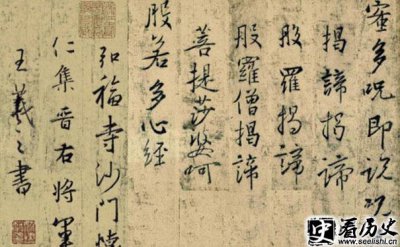 蜜多咒即说
揭諦揭諦
般羅揭諦
般羅僧揭諦
菩提莎婆呵
般若多心經
弘福寺沙門懷
仁集晉右將軍
王羲之書
看历史
www.seelishi.cn